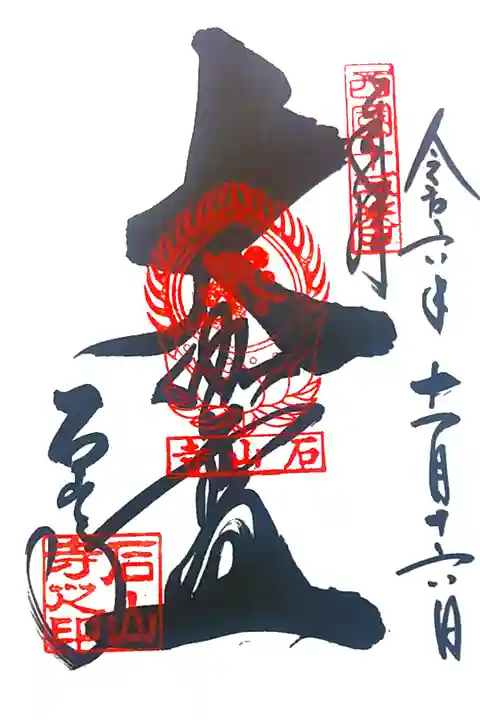 令和六年 十一月十六日
奉拝
西国十三番
大伽藍
石山寺
石山寺
石山寺之印